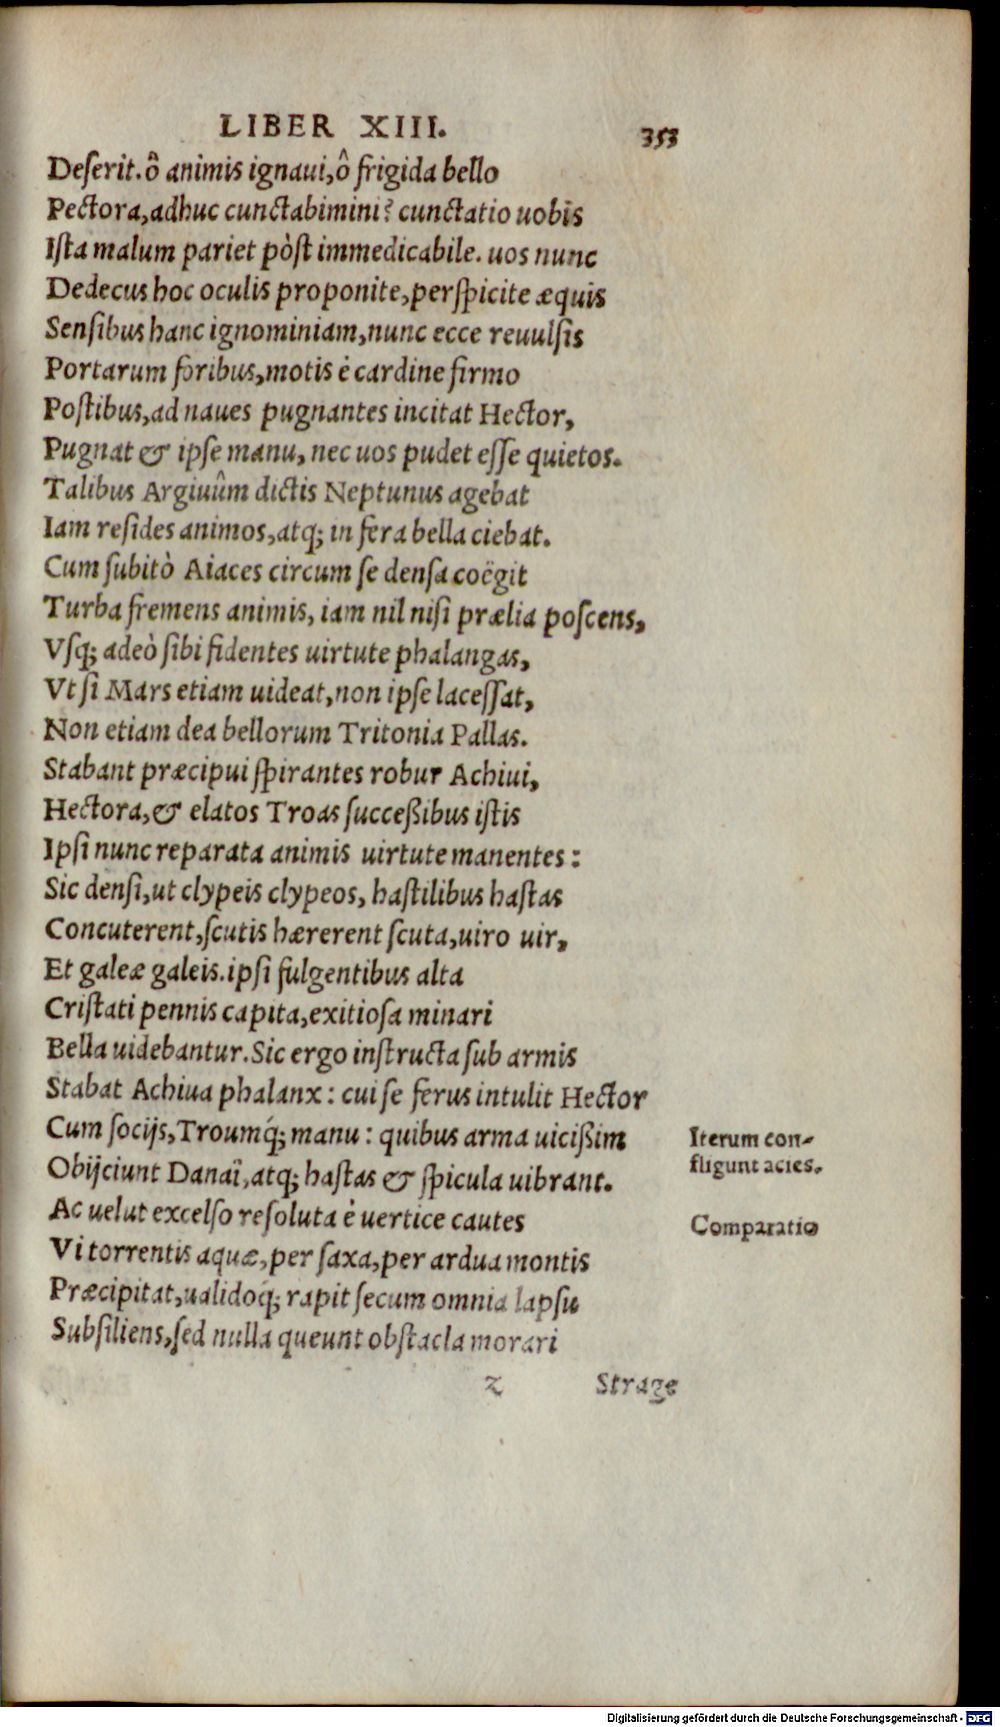 LIBER XIII. 353
Deſerit. ô animis ignaui, ô frigida bello
Pectora, adhuc cunctabimini? cunctatio uobis
Iſta malum pariet pòſt immedicabile. uos nunc
Dedecus hoc oculis proponite, perſpicite æquis
Senſibus hanc ignominiam, nunc ecce reuulſis
Portarum foribus, motis è cardine firmo
Poſtibus, ad naues pugnantes incitat Hector,
Pugnat & ipſe manu, nec uos pudet eſſe quietos.
Talibus Argiuûm dictis Neptunus agebat
Iam reſides animos, atq; in fera bella ciebat.
Cum ſubitò Aiaces circum ſe denſa coëgit
Turba fremens animis, iam nil niſi prælia poſcens,
Vſq; adeò ſibi fidentes uirtute phalangas,
Vt ſi Mars etiam uideat, non ipſe laceſſat,
Non etiam dea bellorum Tritonia Pallas.
Stabant præcipui ſpirantes robur Achiui,
Hectora, & elatos Troas succeßibus iſtis
Ipſi nunc reparata animis uirtute manentes:
Sic denſi, ut clypeis clypeos, haſtilibus haſtas
Concuterent, ſcutis hærerent ſcuta, uiro uir,
Et galeæ galeis. ipſi fulgentibus alta
Criſtati pennis capita, exitioſa minari
Bella uidebantur. Sic ergo inſtructa ſub armis
Stabat Achiua phalanx: cui ſe ferus intulit Hector
Cum ſocijs, Troumq́; manu: quibus arma uicißim
Obijciunt Danaï, atq; haſtas & ſpicula uibrant.
Iterum con-
fligunt acies.
Ac uelut excelſo reſoluta è uertice cautes
Comparatio
Vi torrentis aquæ, per ſaxa, per ardua montis
Præcipitat, ualidoq́; rapit ſecum omnia lapſu
Subſiliens, ſed nulla queunt obſtacla morari
z Strage
Digitalisierung gefördert durch die Deutsche Forschungsgemeinschaft - DFG